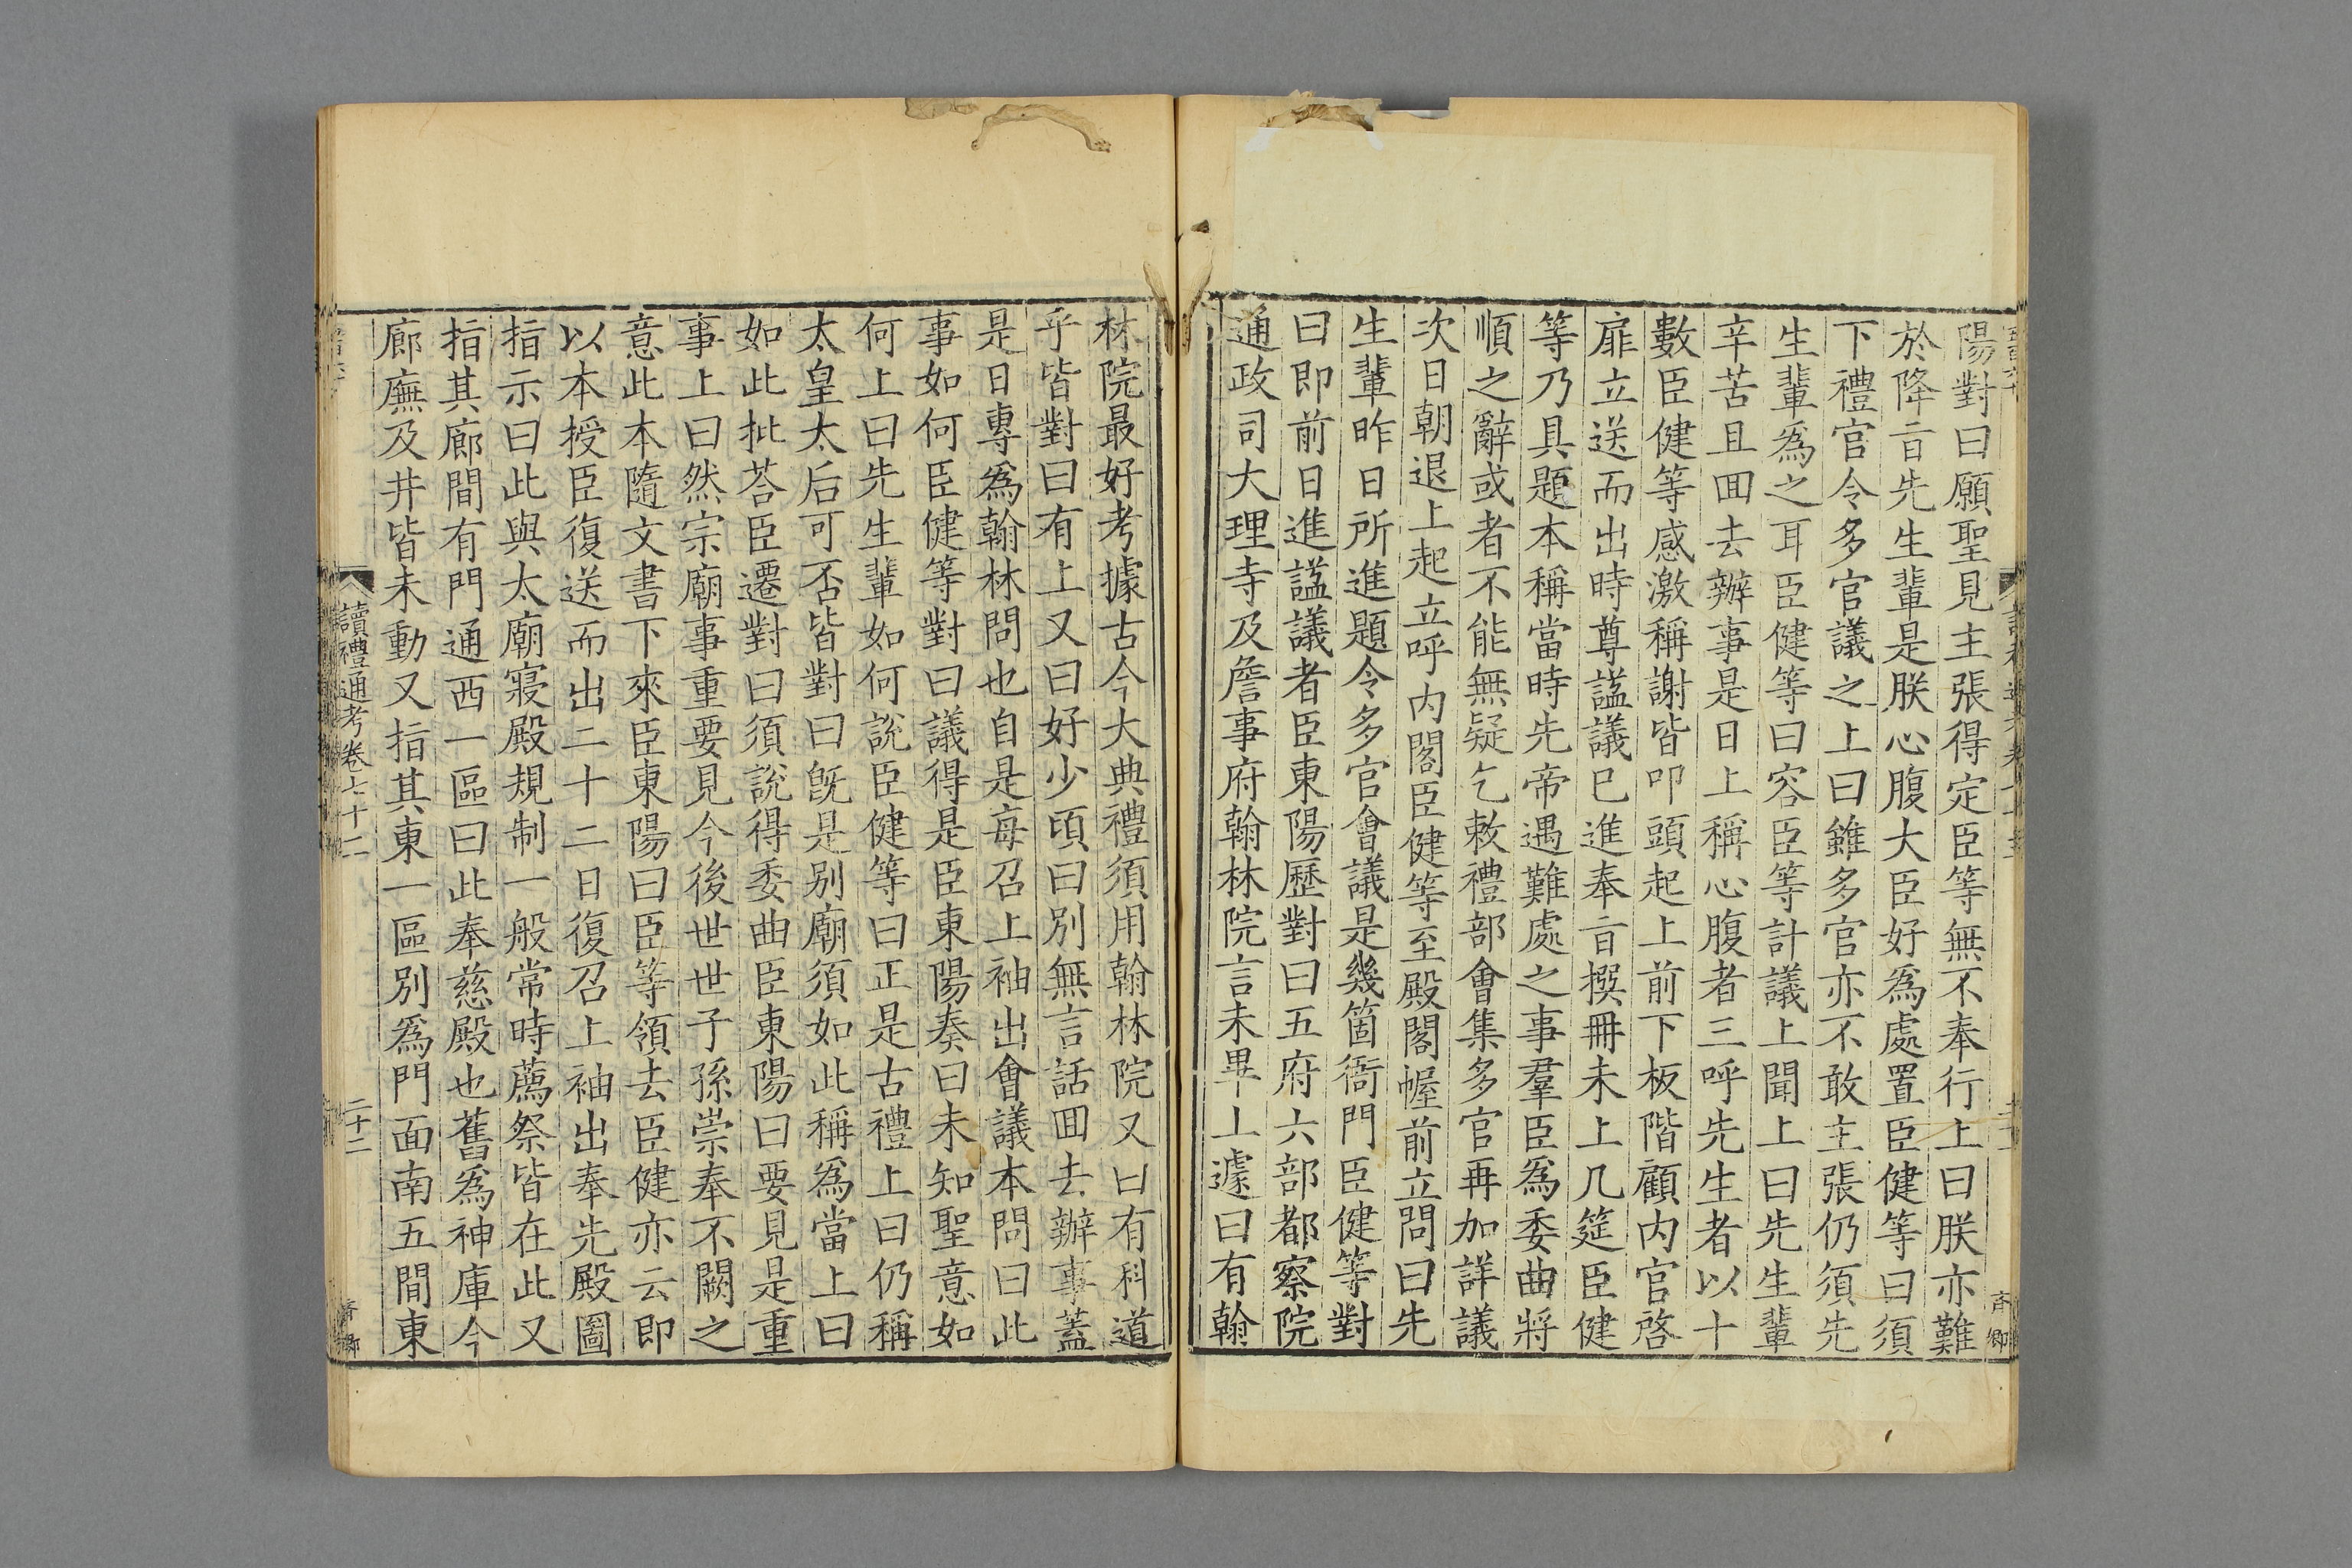 陽對曰願聖見主張得定臣等無不奉行上曰朕亦難
於降旨先生輩是朕心腹大臣好爲處置臣健等曰須
下禮官令多官議之上曰雖多官亦不敢主張仍須先
生輩爲之耳臣健等曰容臣等計議上聞上曰先生輩
辛苦且囬去辦事是日上稱心腹者三呼先生者以十
數臣健等感激稱謝皆叩頭起上前下板階顧内官啓
扉立送而出時尊謚議已進奉旨撰冊未上几筵臣健
等乃具題本稱當時先帝遇難處之事羣臣爲委曲將
順之辭或者不能無疑乞敕禮部會集多官再加詳議
次日朝退上起立呼内閣臣健等至殿閣幄前立問曰先
生輩昨日所進題令多官會議是幾箇衙門臣健等對
曰即前日進謚議者臣東陽歷對曰五府六部都察院
通政司大理寺及詹事府翰林院言未畢上遽曰有翰
林院最好考據古今大典禮須用翰林院又曰有科道
乎皆對曰有上又曰好少頃曰別無言話囬去辦事蓋
是日專爲翰林問也自是每召上袖出會議本問曰此
事如何臣健等對曰議得是臣東陽奏曰未知聖意如
何上曰先生輩如何說臣健等曰正是古禮上曰仍稱
太皇太后可否皆對曰旣是别廟須如此稱爲當上曰
如此批荅臣遷對曰須說得委曲臣東陽曰要見是重
事上曰然宗廟事重要見今後世世子孫崇奉不闕之
意此本隨文書下來臣東陽曰臣等領去臣健亦云即
以本授臣復送而出二十二日復召上袖出奉先殿圖
指示曰此與太廟寢殿規制一般常時薦祭皆在此又
指其廊間有門通西一區曰此奉慈殿也舊爲神庫今
廊廡及井皆未動又指其東一區別爲門面南五間東
讀禮通考卷七十二
二十二